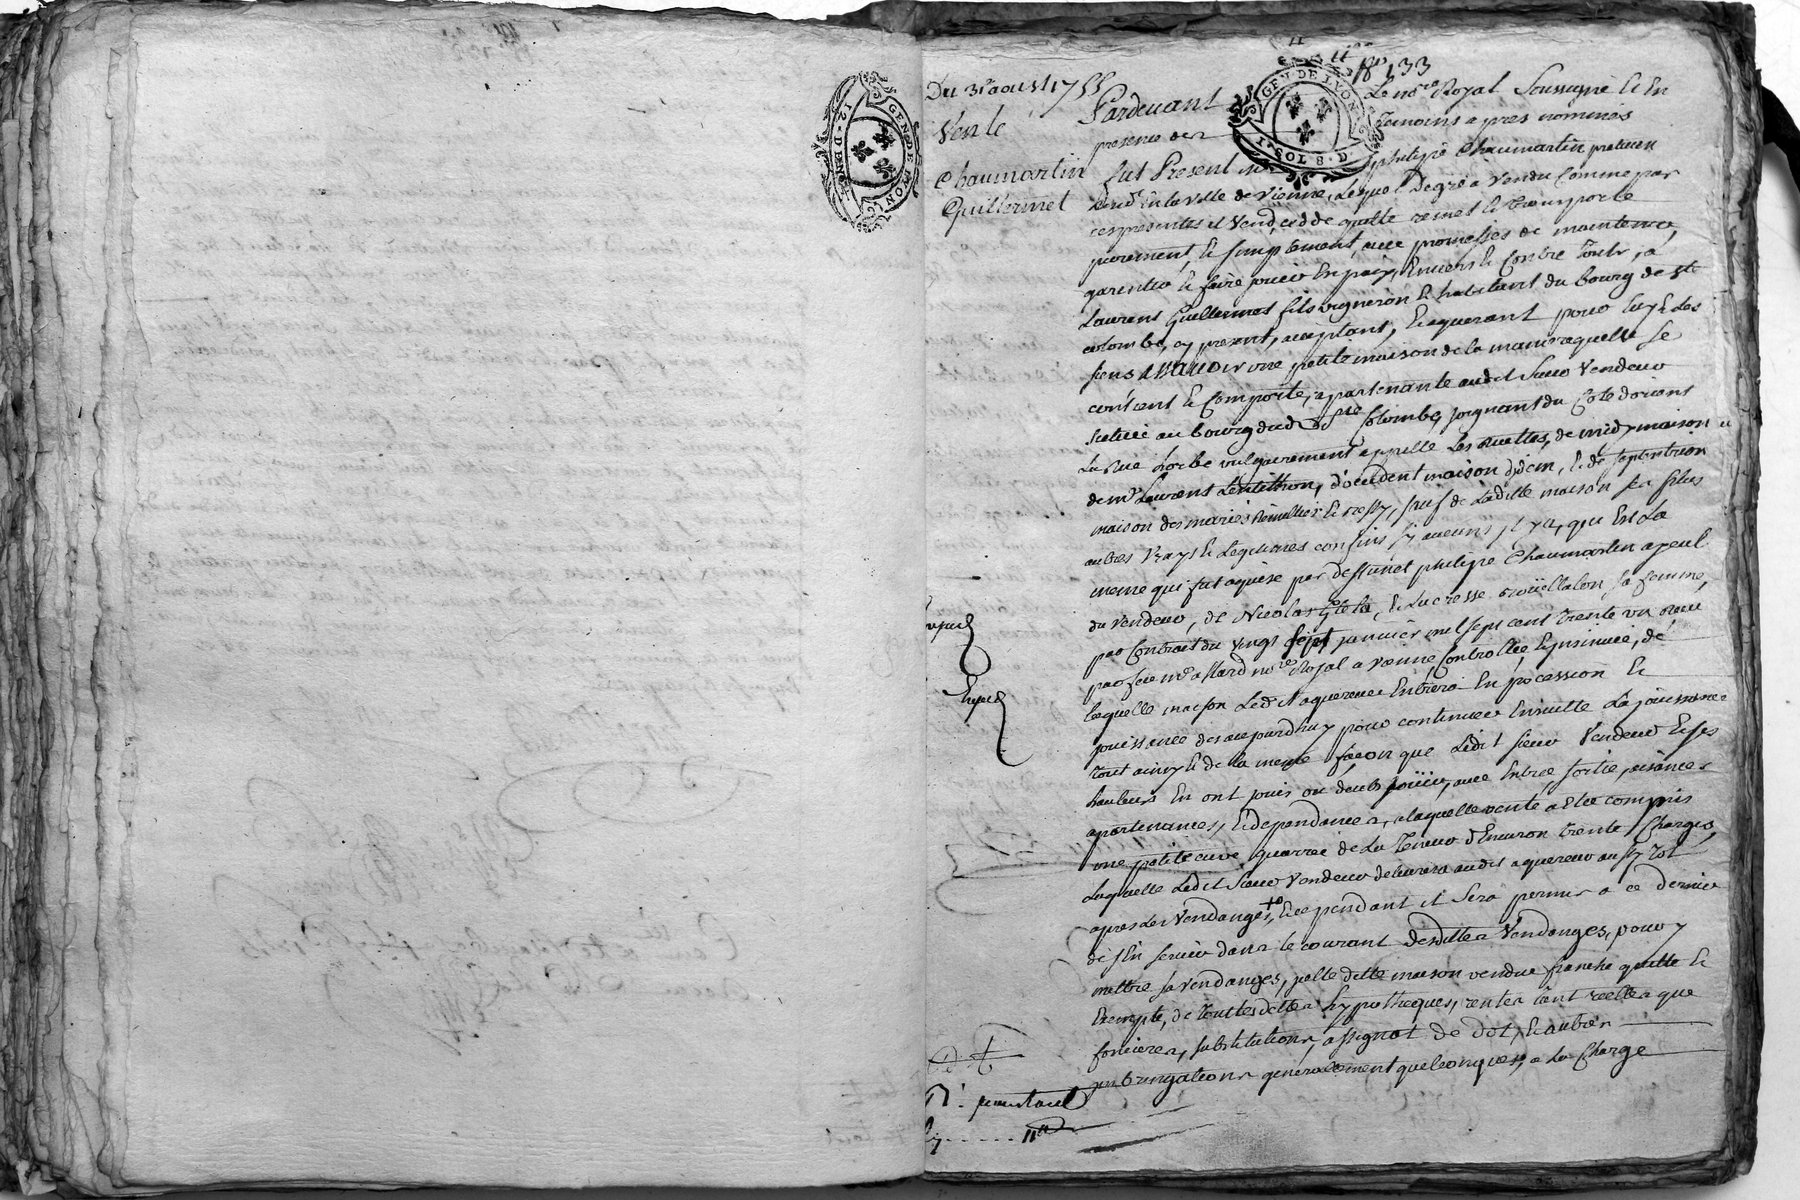 GEN DE MON
12 · DEN
GEN DE LYON
1 · SOL 8 · D
133
Du 31e aoust 1755
Vente
Chaumartin
Guillermet
Pardevant Le nore Royal Soussigné Et En
presence des Temoins apres nommés
fut Present philippe Chaumartin praticien
en la Ville de Vienne, Lequel de gré a Vendu Comme par
ces presentes il Vend, cedde quitte remet Et Transporte
purement, Et simplement, avec promesses de maintenir,
garentir Et faire jouir En paix, Envers Et Contre Touts, a
Laurent Guillermet fils vigneron Et habitant du bourg de Ste
colombe, cy present, aceptant, Et aquerant pour luy Et les
siens ASSAVOIR une petite maison de la maniere quelle se
contient Et Comporte, apartenante audit Sieur Vendeur
Scituée au bourg dud Ste Colombe, joignant du Coté dorient
La Rue Torte vulgairement appellé Les Ruettes, de midy maison
de mr Laurent Lentillion, d'occident maison didem, Et de septentrion
maison des mariés Et ressy, sauf de Laditte maison ses plus
autres Vrays Et Legitimes confins sy aucuns il y a, qui Est La
meme qui fut aquise par deffunct philippe Chaumartin ayeul
du Vendeur, de Nicolas, Et Lucresse sa femme,
par Contrat du Vingt sept janvier mil sept cent trente un receu
par feu me allard nore Royal a Vienne, Controllé Et insinué, de
laquelle maison Ledit aquereur Entrera En pocession Et
jouissance des aujourdhuy pour continuer Ensuitte La jouissance
Tout ainsy Et de la meme façon que Ledit sieur Vendeur Et ses
hauteurs En ont jouis ou deub jouir, avec Entrée sortie, aisances
apartenances, Et dependances, a laquelle vente a Eté compris
une petite cuve quarrée de La Teneur d'Environ trente Charges,
Laquelle Ledit Sieur Vendeur delivrera audit aquereur aussy tot
apres les Vendanges, Et cependant il Sera permis a ce dernier
de s'En servir dans le courant desdittes Vendanges, pour y
mettre sa Vendanges, jcelle ditte maison vendue franche quitte Et
Exempte, de Touttes dettes hypotheques, rentes tant reelles que
foncieres, substitutions, assignat de dot, Et autres
jmbringations generalement quelconques, a La Charge